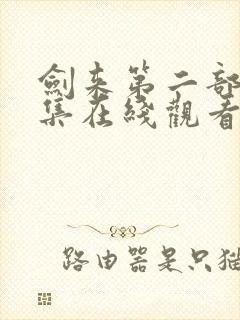 劍来第二部
集在綫觀看
路由器是只猫